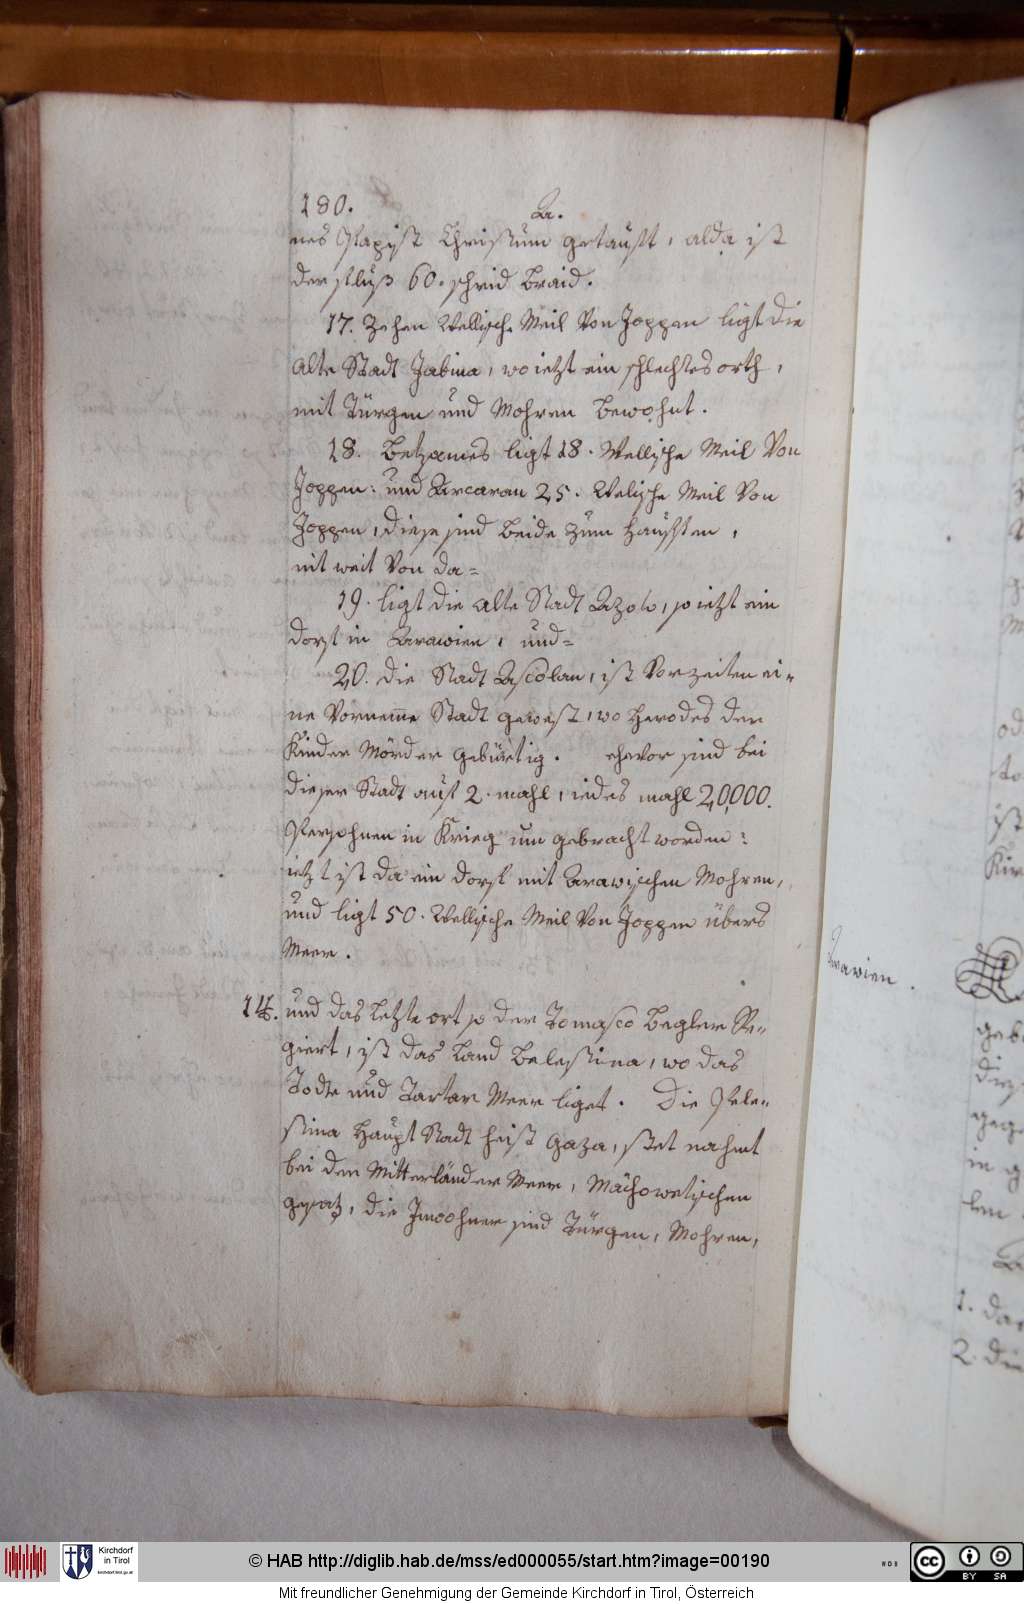 180.
A.
nes Papist Christum getaufft, alda ist
der fluß 60. schrid braid.
17. Zehen Wellische Meil Von Joppen ligt die
alte Stadt Jabina, wo ietzt ein schlechtes orth,
mit Türgen und Mohren bewohnt.
18. Betzames ligt 18. Wellische Meil Von
Joppen: und Arcaron 25. Welische Meil Von
Joppen, diese sind beide zum hauffen,
nit weit Von da=
19. ligt die alte Stadt Azoto, so ietzt ein
dorf in Arawien, und=
20. die Stadt Ascolan, ist Vor zeiten ei-
ne Vorneme Stadt gewest, wo Herodes der
Kinder Mörder gebürtig. ehevor sind bei
dieser Stadt auf 2. mahl, iedes mahl 20,000.
Persohnen in Krieg um gebracht worden:
ietzt ist da ein dorf mit Arawischen Mohren,
und ligt 50. Wellische Meil Von Joppen übers
Meer.
14. und das letzte ort so der Tomasco begler Re-
giert, ist das Land Belestina, wo das
Todte und Tartar Meer liget. Die Pele-
stina Haupt Stadt heist Gaza, stet nahent
bei den Mitterländer Meer, Machowetischen
gesatz, die Inwohner sind Türgen, Mohren,
Arawien.
geb
die
geg
in g
len
1. das
2. die
ist
Kir
Kirchdorf
in Tirol
kirchdorf.tirol.gv.at
© HAB http://diglib.hab.de/mss/ed000055/start.htm?image=00190
WDB
CC BY SA
Mit freundlicher Genehmigung der Gemeinde Kirchdorf in Tirol, Österreich